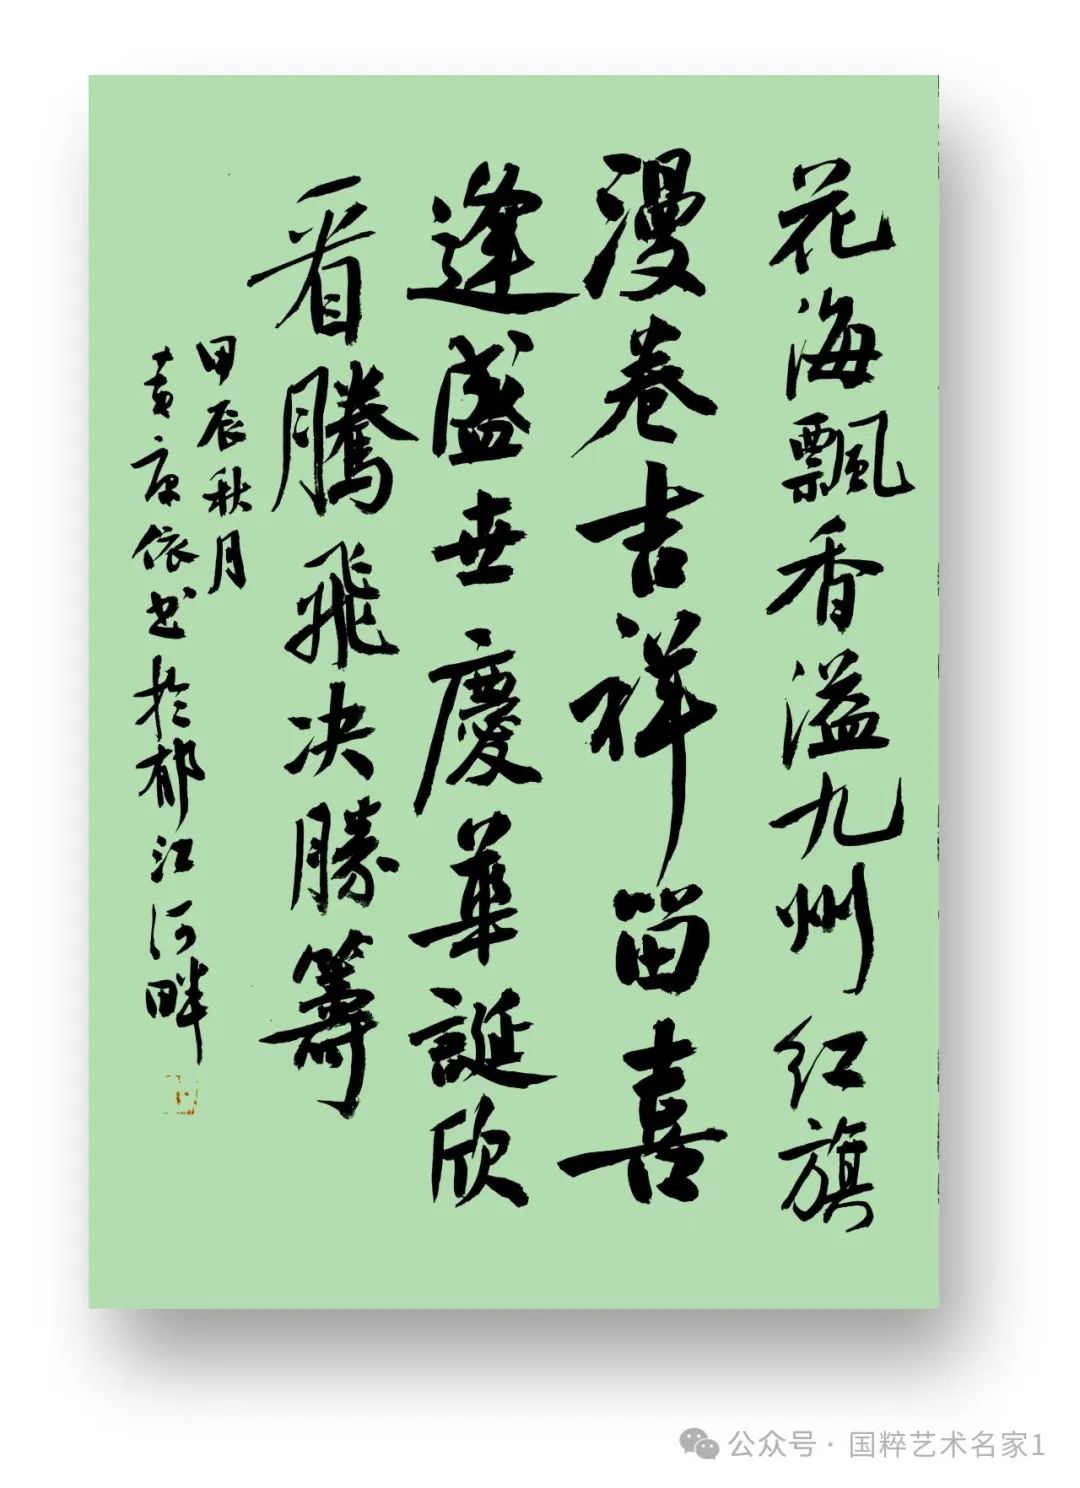 花海飘香溢九州红旗
漫卷吉祥留喜
逢盛世慶華誕欣
看騰飛决勝籌
甲辰秋月
黄康依书於郁江河畔
公众号·国粹艺术名家1